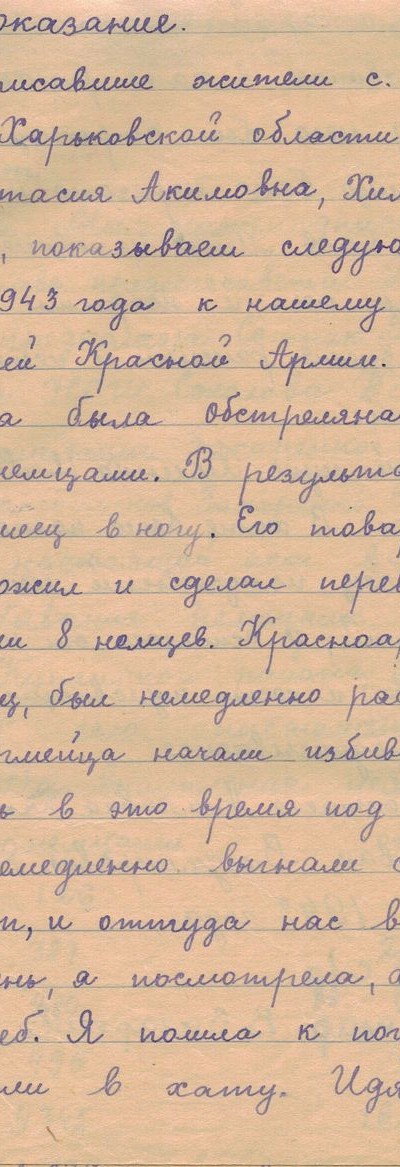 оказание.
писавшие жители с.
Харьковской области
тасия Акимовна, Хил
, показываем следую
943 года к нашему
ей Красной Армии.
а была обстреляна
немцами. В результа
меец в ногу. Его това
ожил и сделал перев
ли 8 немцев. Красноа
ц, был немедленно рас
рмейца начали избив
ь в это время под
емедленно выгнали с
т, и оттуда нас в
нь, я посмотрела, а
еб. Я пошла к пог
ли в хату. Идя